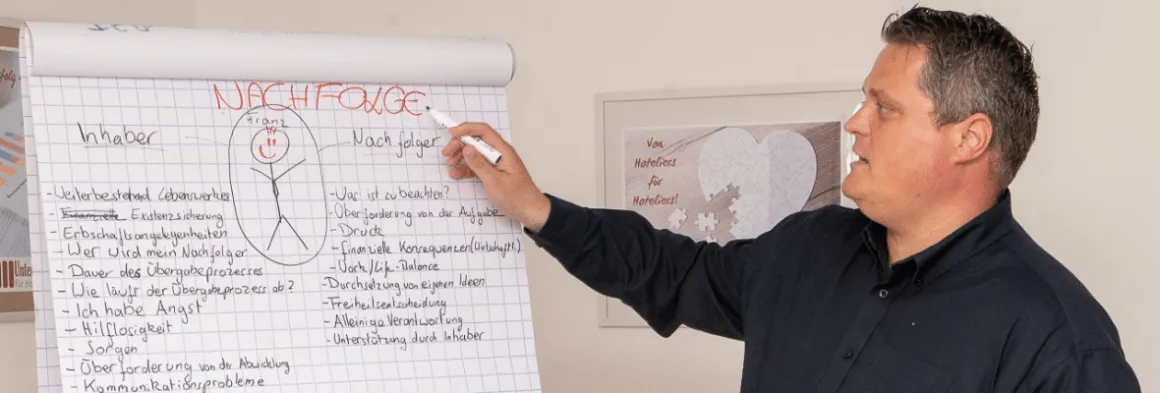 NACHFOLGE
Franz
Inhaber
- Weiterbestehend Lebenswerkes
- Existenzsicherung
- Erbschaftsangelegenheiten
- Wer wird mein Nachfolger
- Dauer des Übergabeprozesses
- Wie läuft der Übergabeprozess ab?
- Ich habe Angst
- Hilflosigkeit
- Sorgen
- Überforderung von der Abwicklung
- Kommunikationsprobleme
Nachfolger
- Was ist zu beachten?
- Überforderung von der Aufgabe
- Druck
- finanzielle Konsequenzen (Wirtschaftl.)
- Work/Life-Balance
- Durchsetzung von eigenen Ideen
- Freiheitsentscheidung
- Alleinige Verantwortung
- Unterstützung durch Inhaber
Von
Hoteliers
für
Hoteliers!